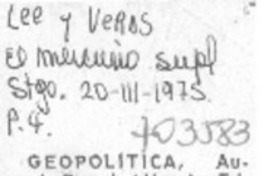 Lee y Veros
El mercurio supl
Stgo. 20-III-1975.
P. 4.
703583
GEOPOLITICA, Au-